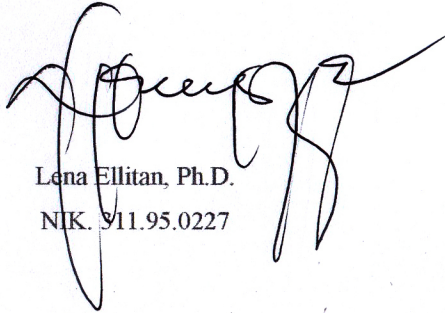 Lena Ellitan, Ph.D.
NIK. 311.95.0227